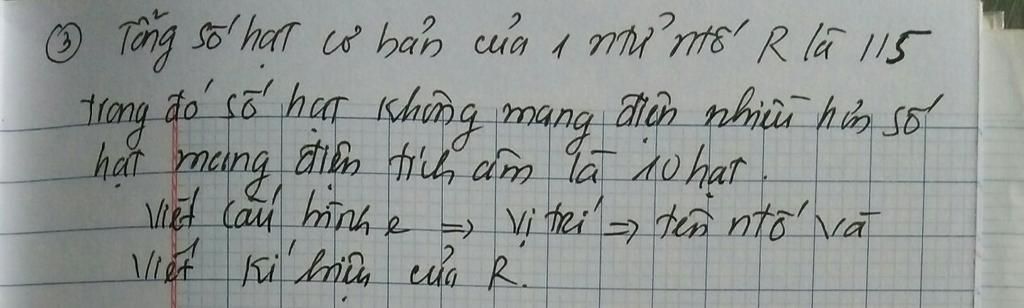 ③ Tổng số hạt cơ bản của 1 ntử ntố R là 115
trong đó số hạt không mang điện nhiều hơn số
hạt mang điện tích âm là 10 hạt.
Viết cấu hình e => vị trí => tên ntố và
Viết kí hiệu của R.